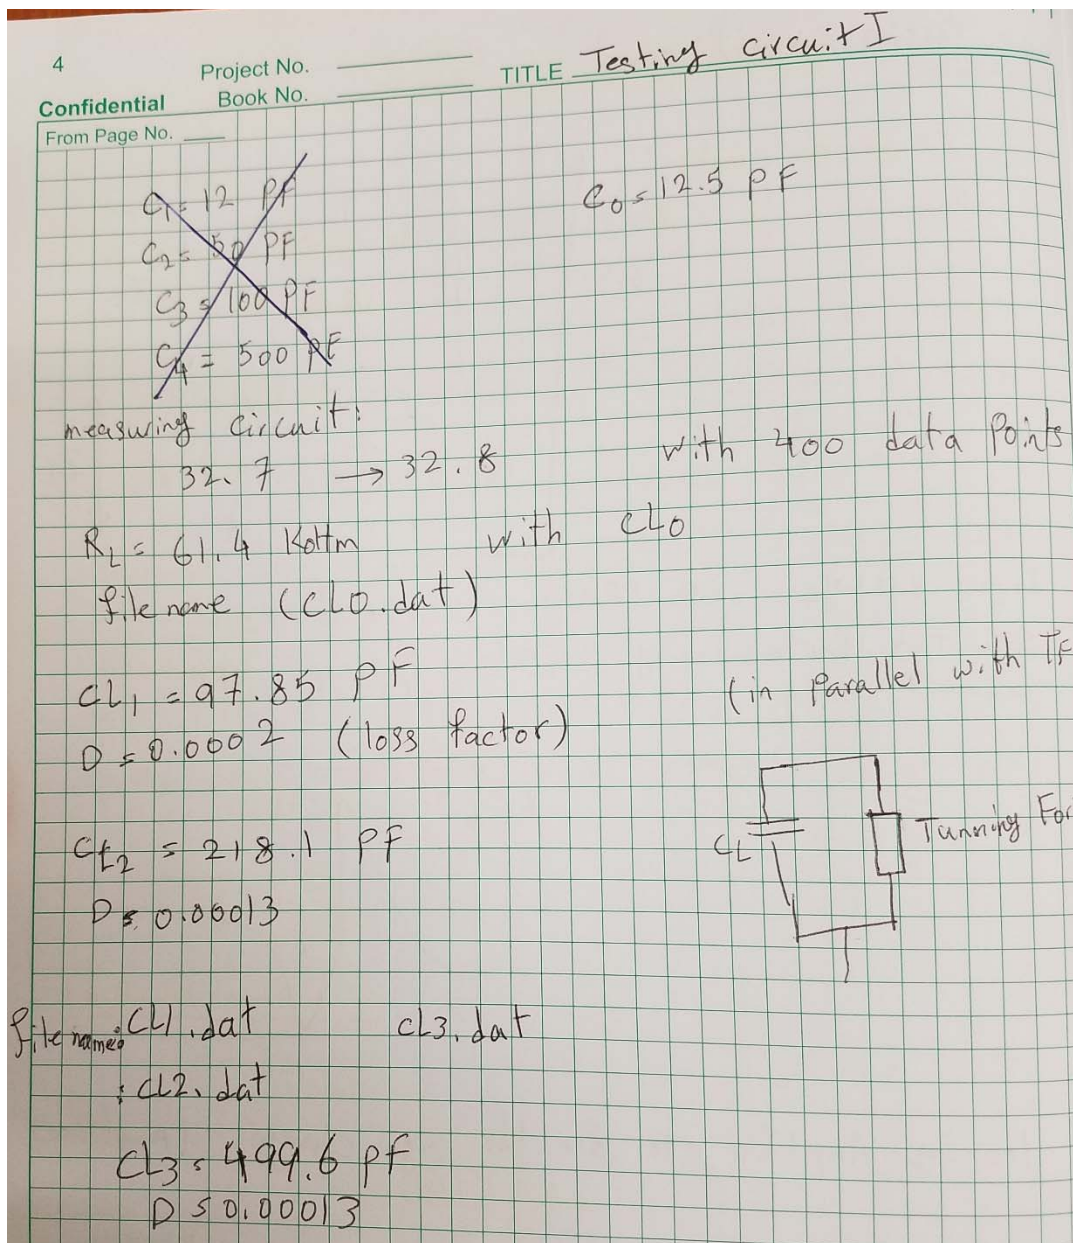 4
Project No.
TITLE Testing circuit I
Confidential
Book No.
From Page No.
C1 = 12 PF
C0 = 12.5 PF
C2 = 50 PF
C3 = 100 PF
C4 = 500 PF
measuring circuit:
32.7 → 32.8 with 400 data Points
RL = 61.4 KoHm with CL0
file name (CL0.dat)
CL1 = 97.85 PF
(in parallel with TF
D = 0.0002 (loss factor)
CL2 = 218.1 PF
CL
Tunning For
D = 0.00013
file name: CL1.dat CL3.dat
: CL2.dat
CL3 = 499.6 pf
D = 0.00013